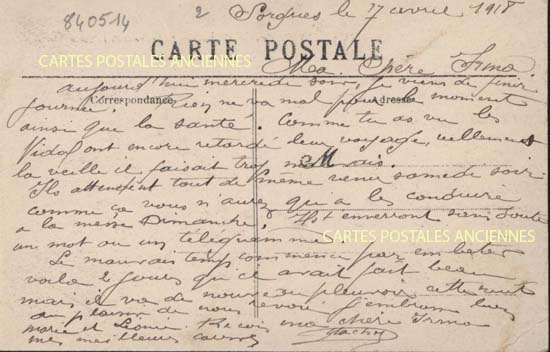 840514
2 Sorgues le 17 avril 1918
CARTE POSTALE
CARTES POSTALES ANCIENNES
Ma Chère Irma
aujourd'hui mercredi soir, je viens de finir
journée. Rien ne va mal pour le moment
Correspondance Adresse
ainsi que la santé. Comme tu as vu les
Vidal ont encore retardé leur voyage, tellement
la veille il faisait trop mauvais.
M
Ils attendent tout de même venir samedi soir
comme ça vous n'aurez qu'a les conduire
a la messe Dimanche. Ils enverront sans doute
un mot ou un télégramme.
CARTES POSTALES ANCIENNES
Le mauvais temps commence par embêter
voila 2 jours qu'il avait fait beau
mais il va de nouveau pleuvoir cette nuit
au plaisir de vous revoir J'embrasse
marie et Léonie. Recois ma chère Irma
mes meilleures